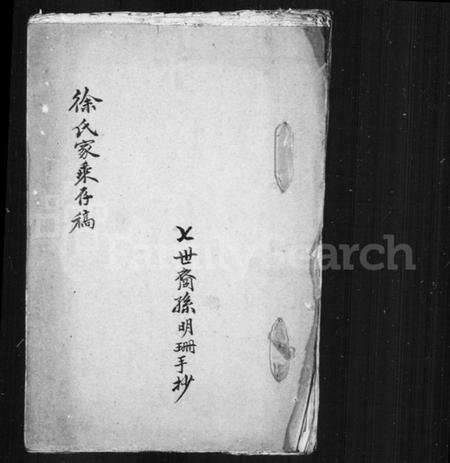 徐氏家乘存稿
〤世裔孫明珊手抄
FamilySearch